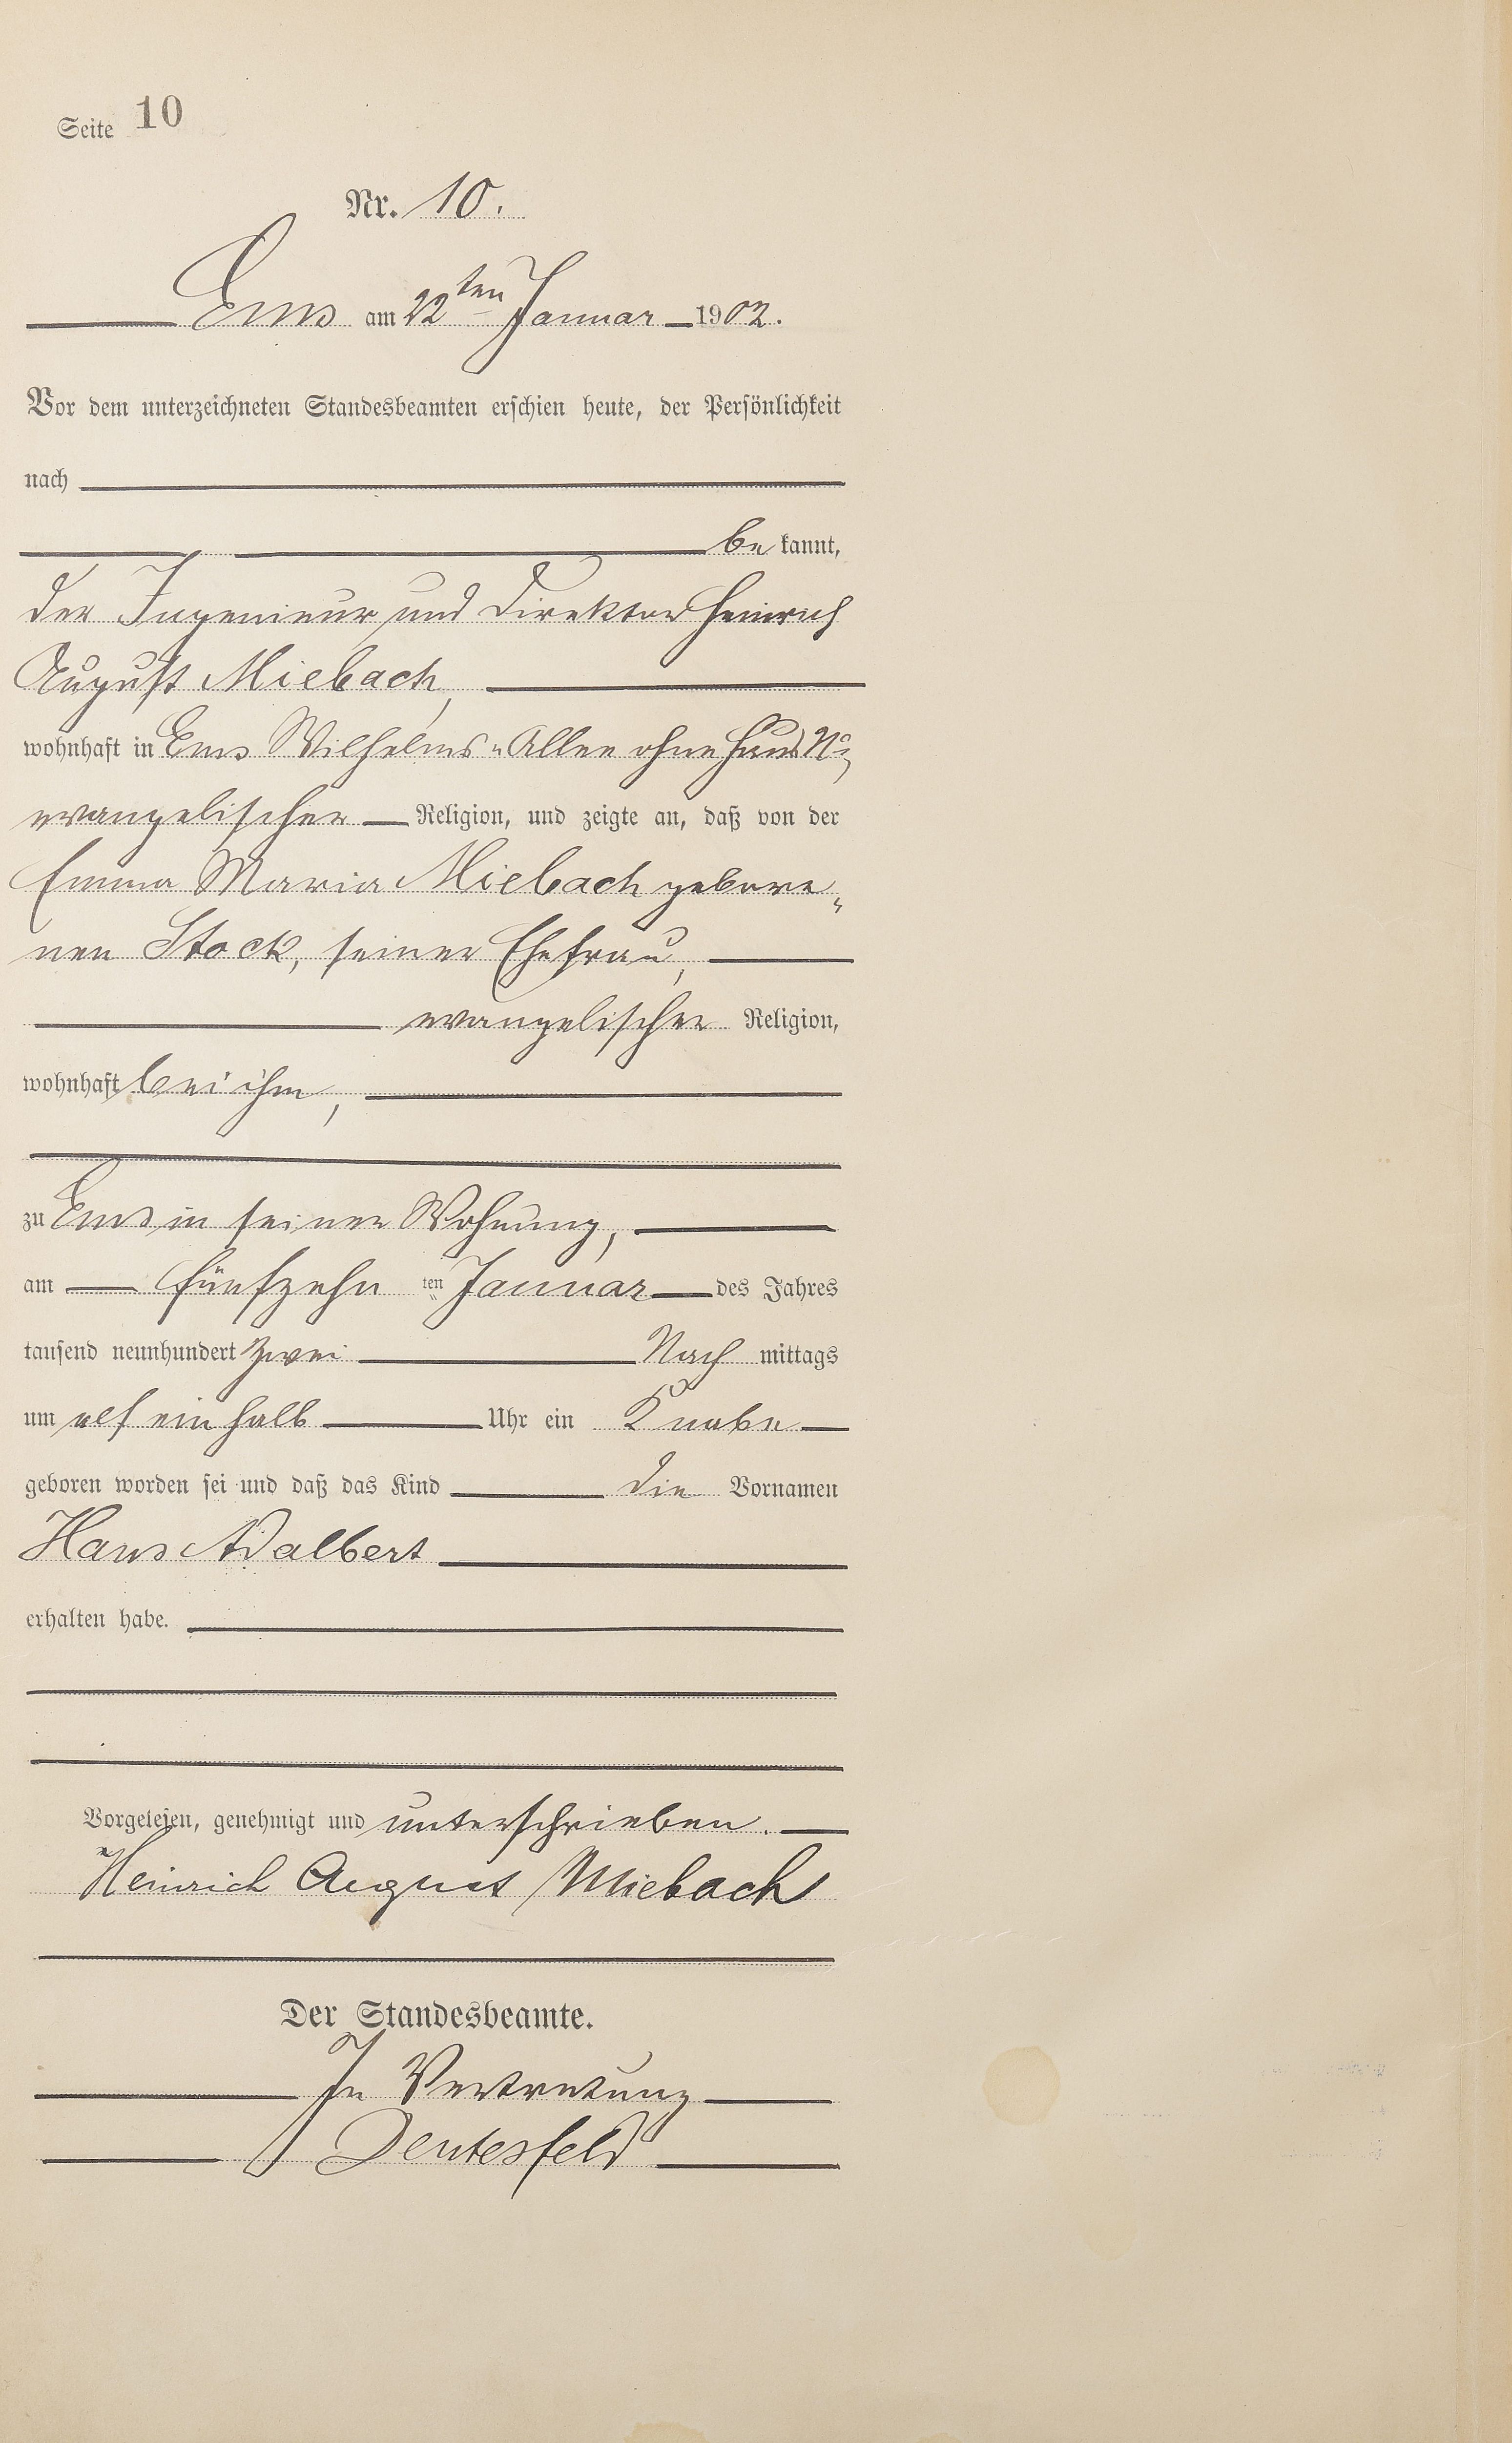 Seite 10
Nr. 10.
Ems am 22ten Januar 1902.
Vor dem unterzeichneten Standesbeamten erschien heute, der Persönlichkeit
nach
bekannt,
der Ingenieur und Direktor Heinrich
August Miebach,
wohnhaft in Ems Wilhelms-Allee ohne Haus No,
evangelischer Religion, und zeigte an, daß von der
Emma Maria Miebach gebore-
nen Stock, seiner Ehefrau,
evangelischer Religion,
wohnhaft bei ihm,
zu Ems in seiner Wohnung,
am fünfzehnten Januar des Jahres
tausend neunhundert zwei Nachmittags
um elf ein halb Uhr ein Knabe
geboren worden sei und daß das Kind die Vornamen
Hans Adalbert
erhalten habe.
Vorgelesen, genehmigt und unterschrieben.
Heinrich August Miebach
Der Standesbeamte.
In Vertretung
Deutesfeld